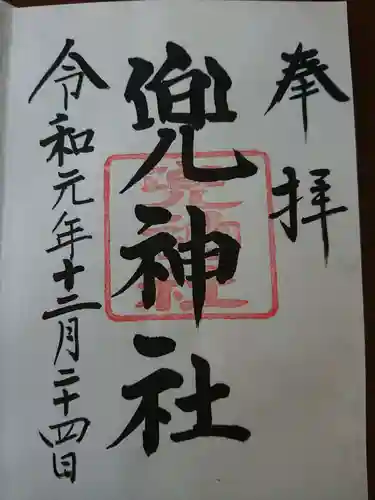 奉拝
兜神社
兜神社
令和元年十二月二十四日